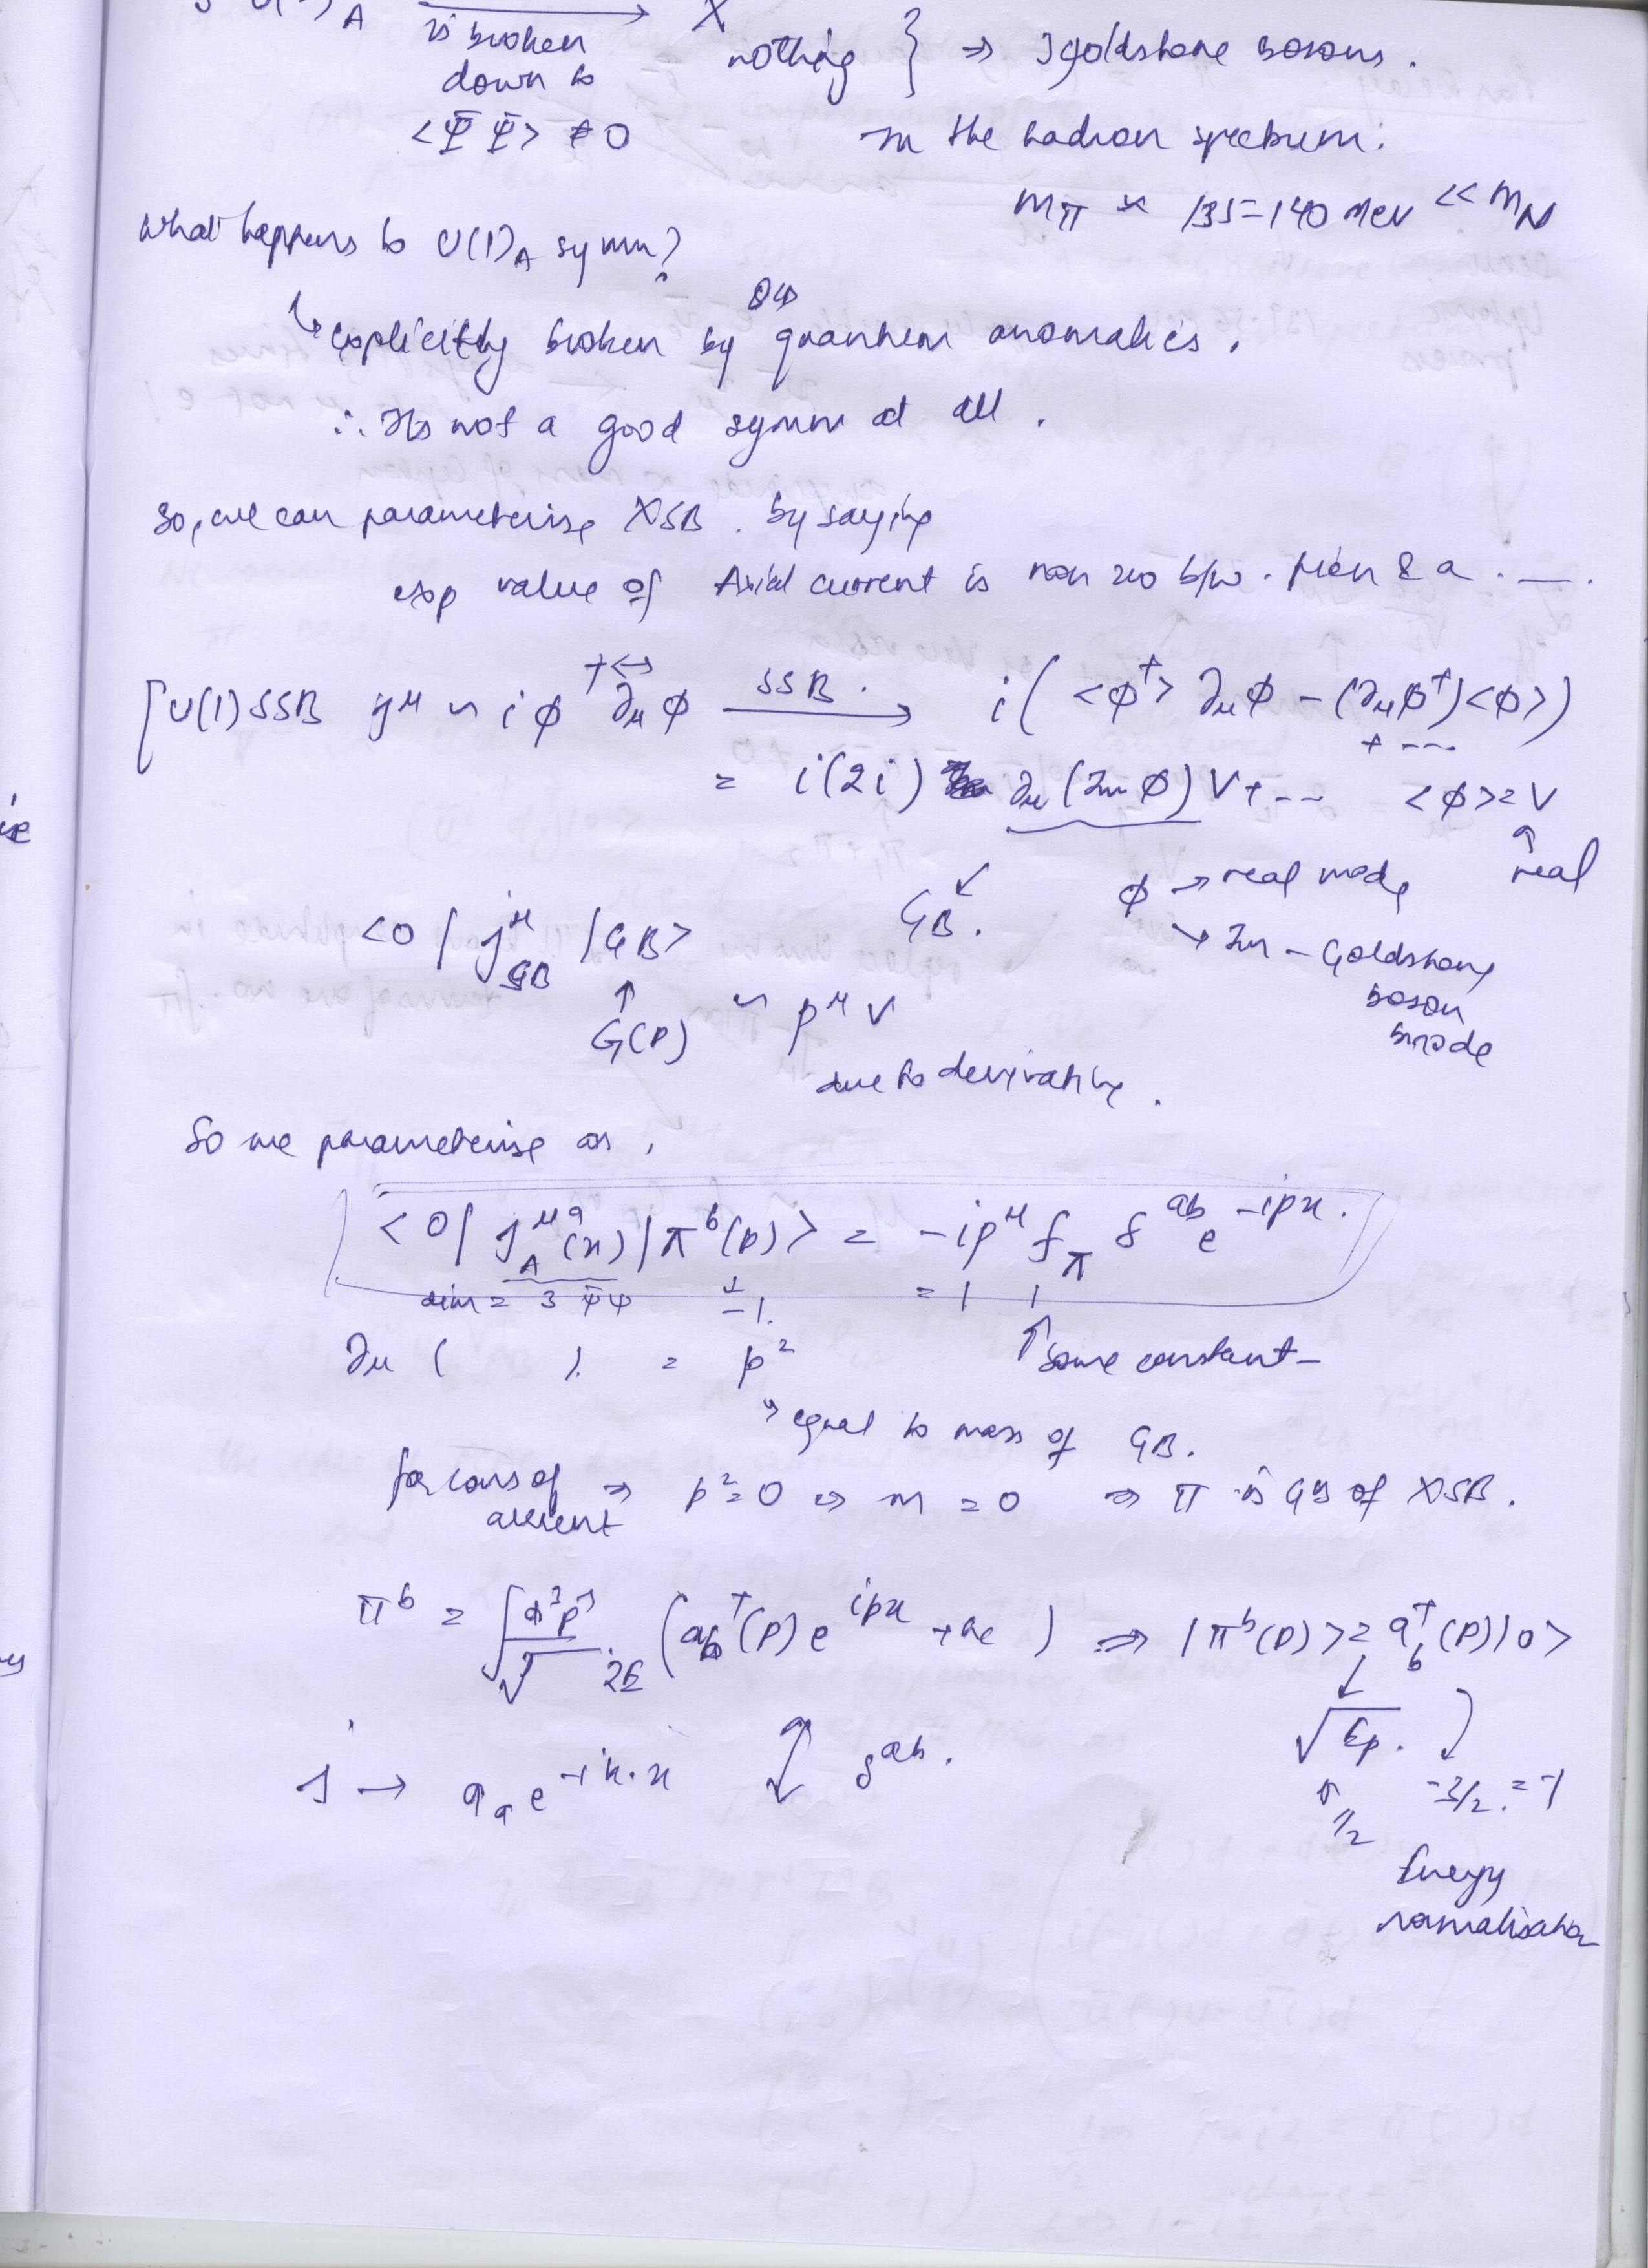 is broken
down to
nothing } ⇒ 3 goldstone bosons.
<Ψ̄ Ψ> ≠ 0
in the hadron spectrum.
mπ ≈ 135-140 MeV << mN
What happens to U(1)A symm?
↳ explicitly broken by quantum anomalies.
∴ Its not a good symm at all.
So, we can parameterise χSB. by saying
exp value of Axial current is non zero b/w. pion & a . —.
[U(1) SSB j^μ ~ i φ† ∂↔_μ φ —SSB.→ i(<φ†> ∂_μ φ - (∂_μ φ†)<φ>)
+ ---
= i(2i) ∂_μ (Im φ) V + -- <φ> = V
↑ real
GB.
φ → real mode
→ Im - Goldstone boson mode
<0| j^μ_GB |GB>
↑ G(p) ~ p^μ V
due to derivative.
So we parameterise as,
<0| j_A^{μa}(x) |π^b(p)> = -i p^μ f_π δ^{ab} e^{-ipx}.
dim = 3 Ψ̄Ψ ↓ -1. = 1 1
∂_μ ( ). = p² ↑ some constant
↳ equal to mass of GB.
for cons of current ⇒ p² = 0 ⇒ m = 0 ⇒ π is GB of χSB.
π^b = ∫ d³p / √ 2E (a_b†(p) e^{ipx} + hc) ⇒ |π^b(p)> = a_b†(p)|0>
√Ep.
j → a_a e^{-ik·x} ↕ δ^{ab}.
-3/2. = -1
↑ 1/2
Energy
normalisation